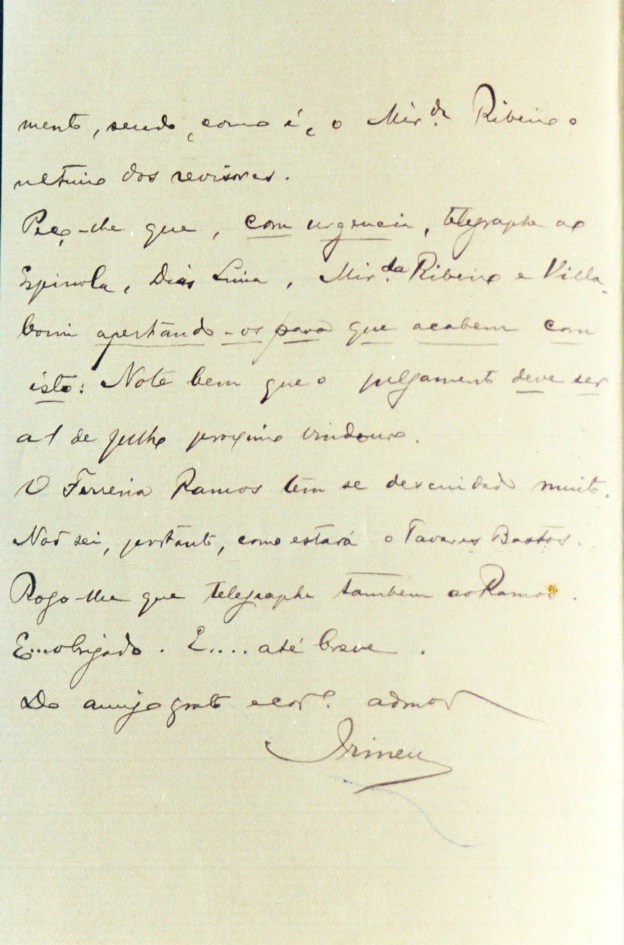 mento, sendo, como é, o Mir.da Ribeiro o
ultimo dos revisores.
Peço-lhe que, com urgencia, telegraphe ao
Espinola, Dias Lima, Mir.da Ribeiro e Villa-
boim apertando-os para que acabem com
isto: Note bem que o julgamento deve ser
a 1 de julho proximo vindouro.
O Ferreira Ramos tem se descuidado muito.
Não sei, portanto, como estará o Tavares Bastos.
Rogo-lhe que telegraphe tambem ao Ramos.
E...obrigado. E.... até breve.
Do amigo grato e cor.º admor
Irineu